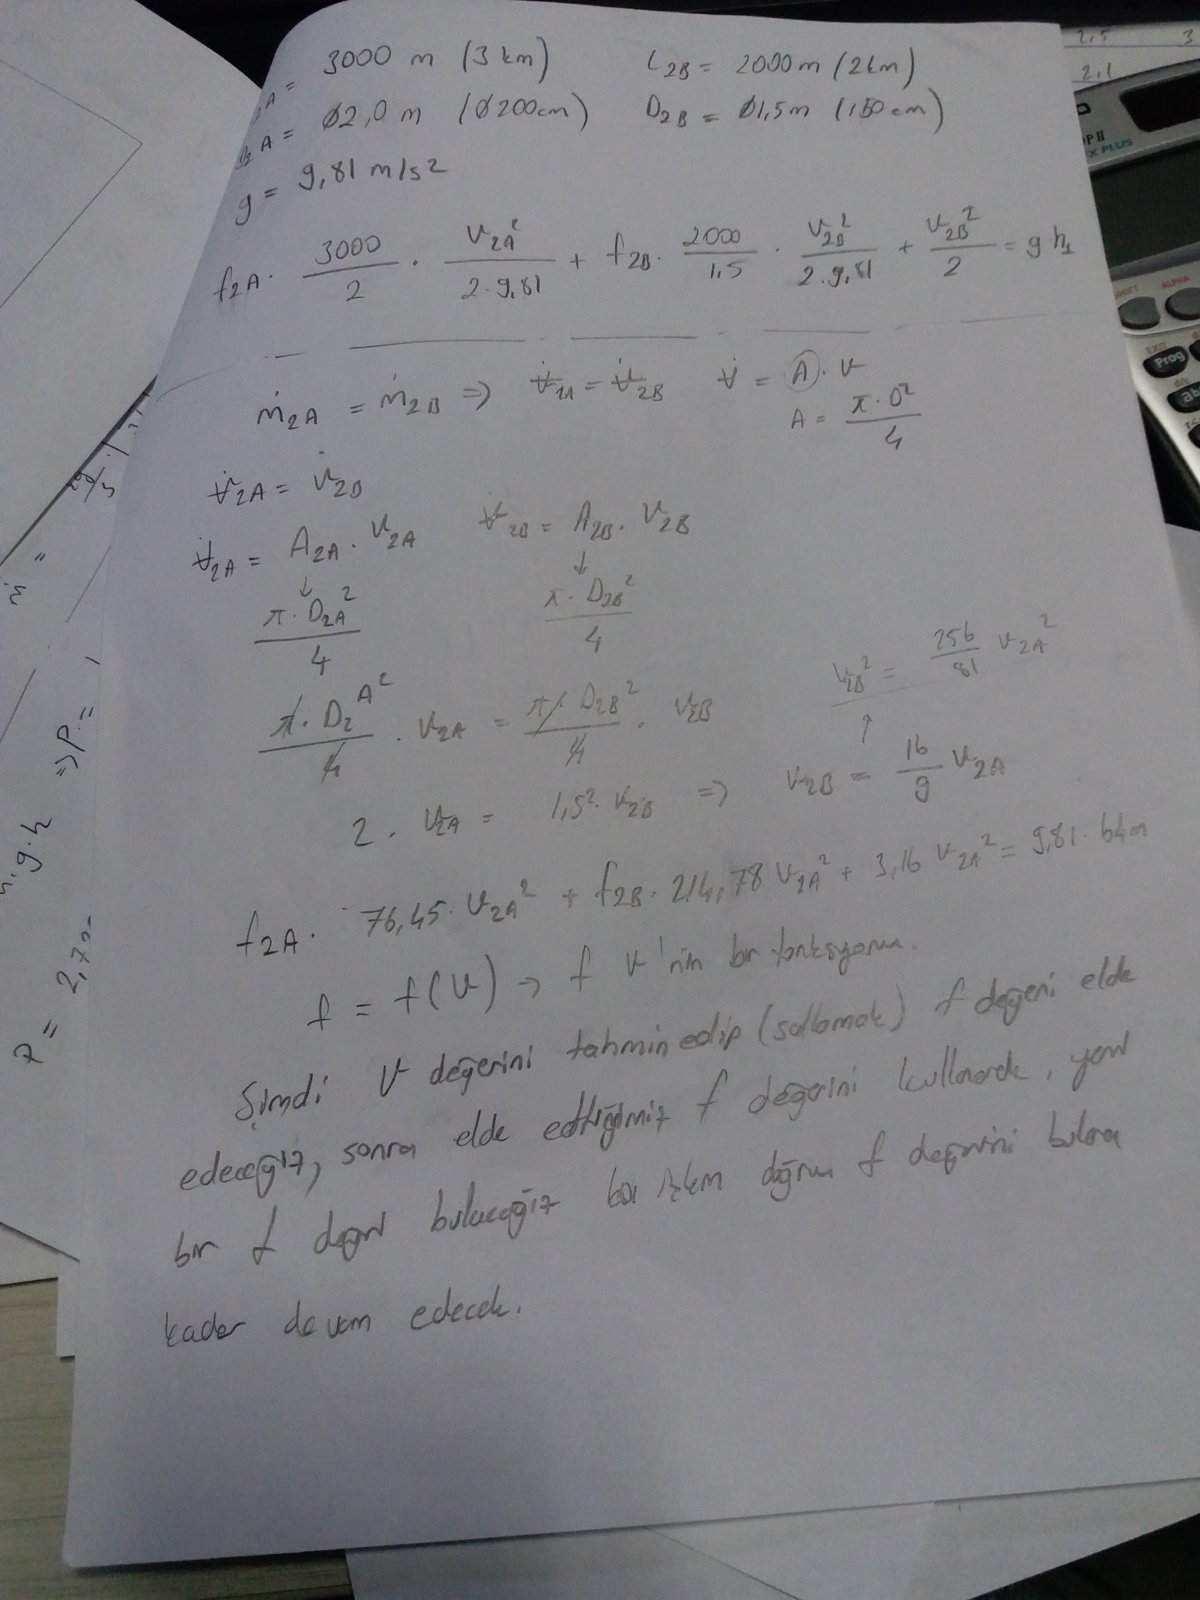 A = 3000 m (3 km) L2B = 2000m (2km)
2A = Ø2,0 m (Ø200cm) D2B = Ø1,5m (150cm)
g = 9,81 m/s2
f2A · 3000/2 · V2A²/2·9,81 + f2B · 2000/1,5 · V2B²/2·9,81 + V2B²/2 = g h1
ṁ2A = ṁ2B => V̶̇2A = V̶̇2B V̶̇ = A · V
A = π·D²/4
V̶̇2A = V̇2B
V̶̇2A = A2A · V2A V̶̇2B = A2B · V2B
↓ ↓
π·D2A²/4 π·D2B²/4
V2B² = 256/81 V2A²
↑
π·D2A²/4 · V2A = π·D2B²/4 · V2B
2 · V2A = 1,5² · V2B => V2B = 16/9 V2A
f2A · 76,45 · V2A² + f2B · 214,78 V2A² + 3,16 V2A² = 9,81 · 64m
f = f(V) → f V'nin bir fonksiyonu.
Şimdi V değerini tahmin edip (sallamak) f değeri elde
edeceğiz, sonra elde ettiğimiz f değerini kullanarak, yeni
bir f değeri bulacağız bu işlem doğru f değerini bulana
kadar devam edecek.
g·h => P =
P = 2,7
2,5 3
2,1
PLUS
SHIFT ALPHA
EXIT
Prog